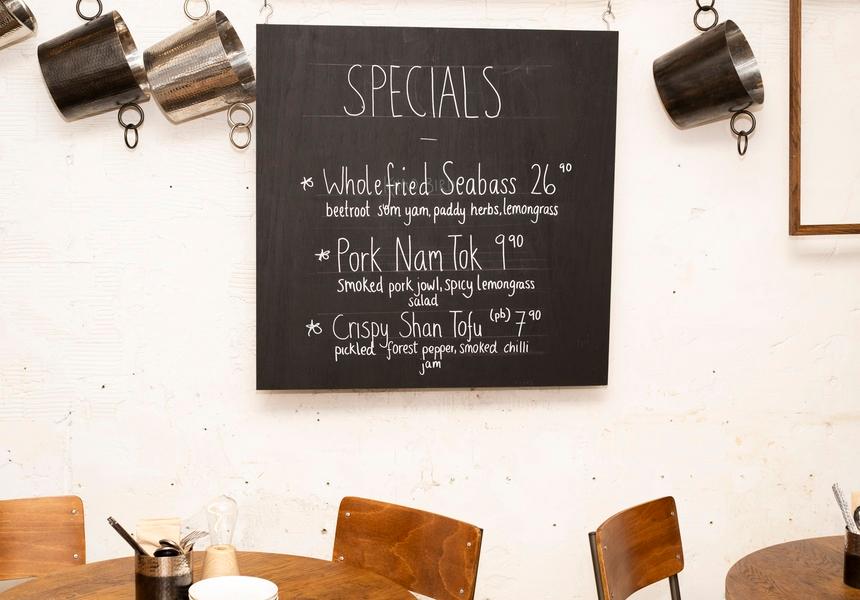 SPECIALS
—
* Whole fried Seabass 26⁹⁰
beetroot som yam, paddy herbs, lemongrass
* Pork Nam Tok 9⁹⁰
smoked pork jowl, spicy lemongrass
salad
* Crispy Shan Tofu (pb) 7⁹⁰
pickled forest pepper, smoked chilli
jam